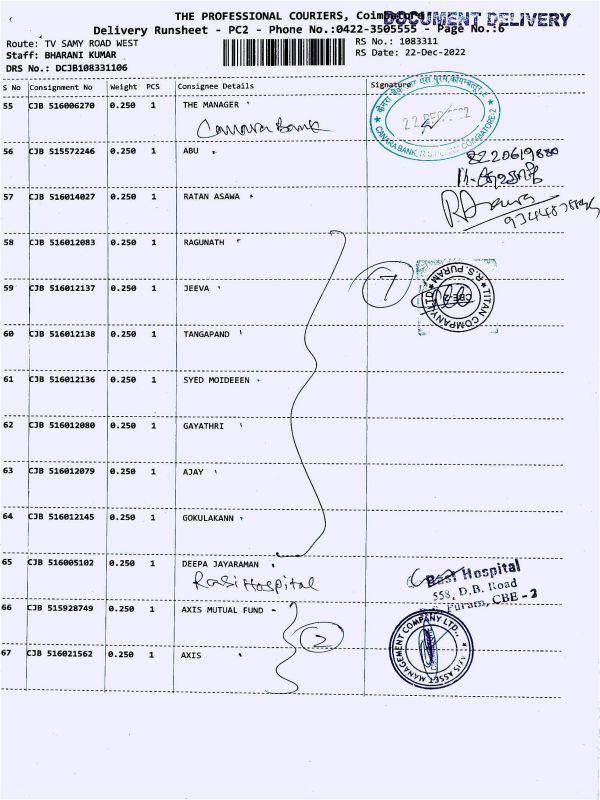 THE PROFESSIONAL COURIERS, Coimbatore
DOCUMENT DELIVERY
Delivery Runsheet - PC2 - Phone No.:0422-3505555 - Page No.:6
Route: TV SAMY ROAD WEST
RS No.: 1083311
Staff: BHARANI KUMAR
RS Date: 22-Dec-2022
DRS No.: DCJB108331106
S No Consignment No Weight PCS Consignee Details Signature
55 CJB 516006270 0.250 1 THE MANAGER
Canara Bank
CANARA BANK, COIMBATORE-2
56 CJB 515572246 0.250 1 ABU
8220619880
57 CJB 516014027 0.250 1 RATAN ASAWA
58 CJB 516012083 0.250 1 RAGUNATH
59 CJB 516012137 0.250 1 JEEVA
7
TITAN COMPANY LTD ★ R.S. PURAM ★
CBE-2
60 CJB 516012138 0.250 1 TANGAPAND
61 CJB 516012136 0.250 1 SYED MOIDEEEN
62 CJB 516012080 0.250 1 GAYATHRI
63 CJB 516012079 0.250 1 AJAY
64 CJB 516012145 0.250 1 GOKULAKANN
65 CJB 516005102 0.250 1 DEEPA JAYARAMAN
Rasi Hospital
Rasi Hospital
558, D.B. Road
R.S. Puram, CBE - 2
66 CJB 515928749 0.250 1 AXIS MUTUAL FUND
2
67 CJB 516021562 0.250 1 AXIS
AXIS ASSET MANAGEMENT COMPANY LTD.,